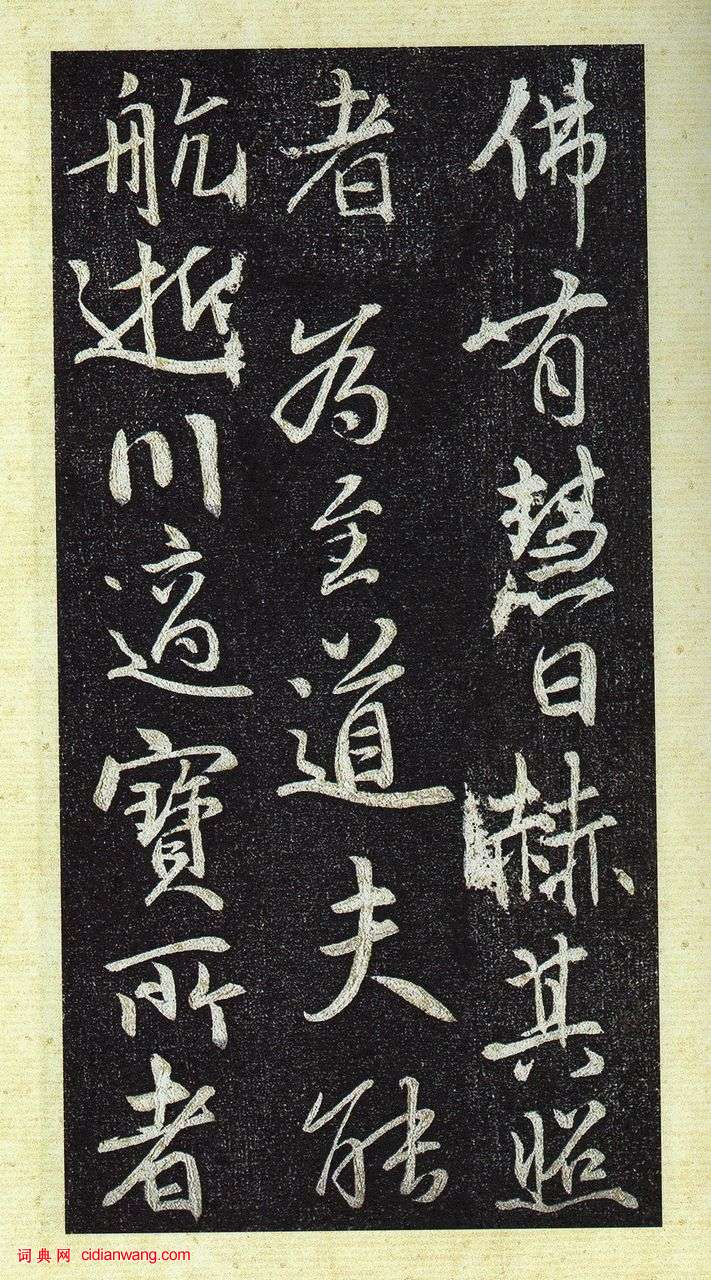 佛有慧日赫其照
者為至道夫能
航逝川適寶所者
词典网 cidianwang.com